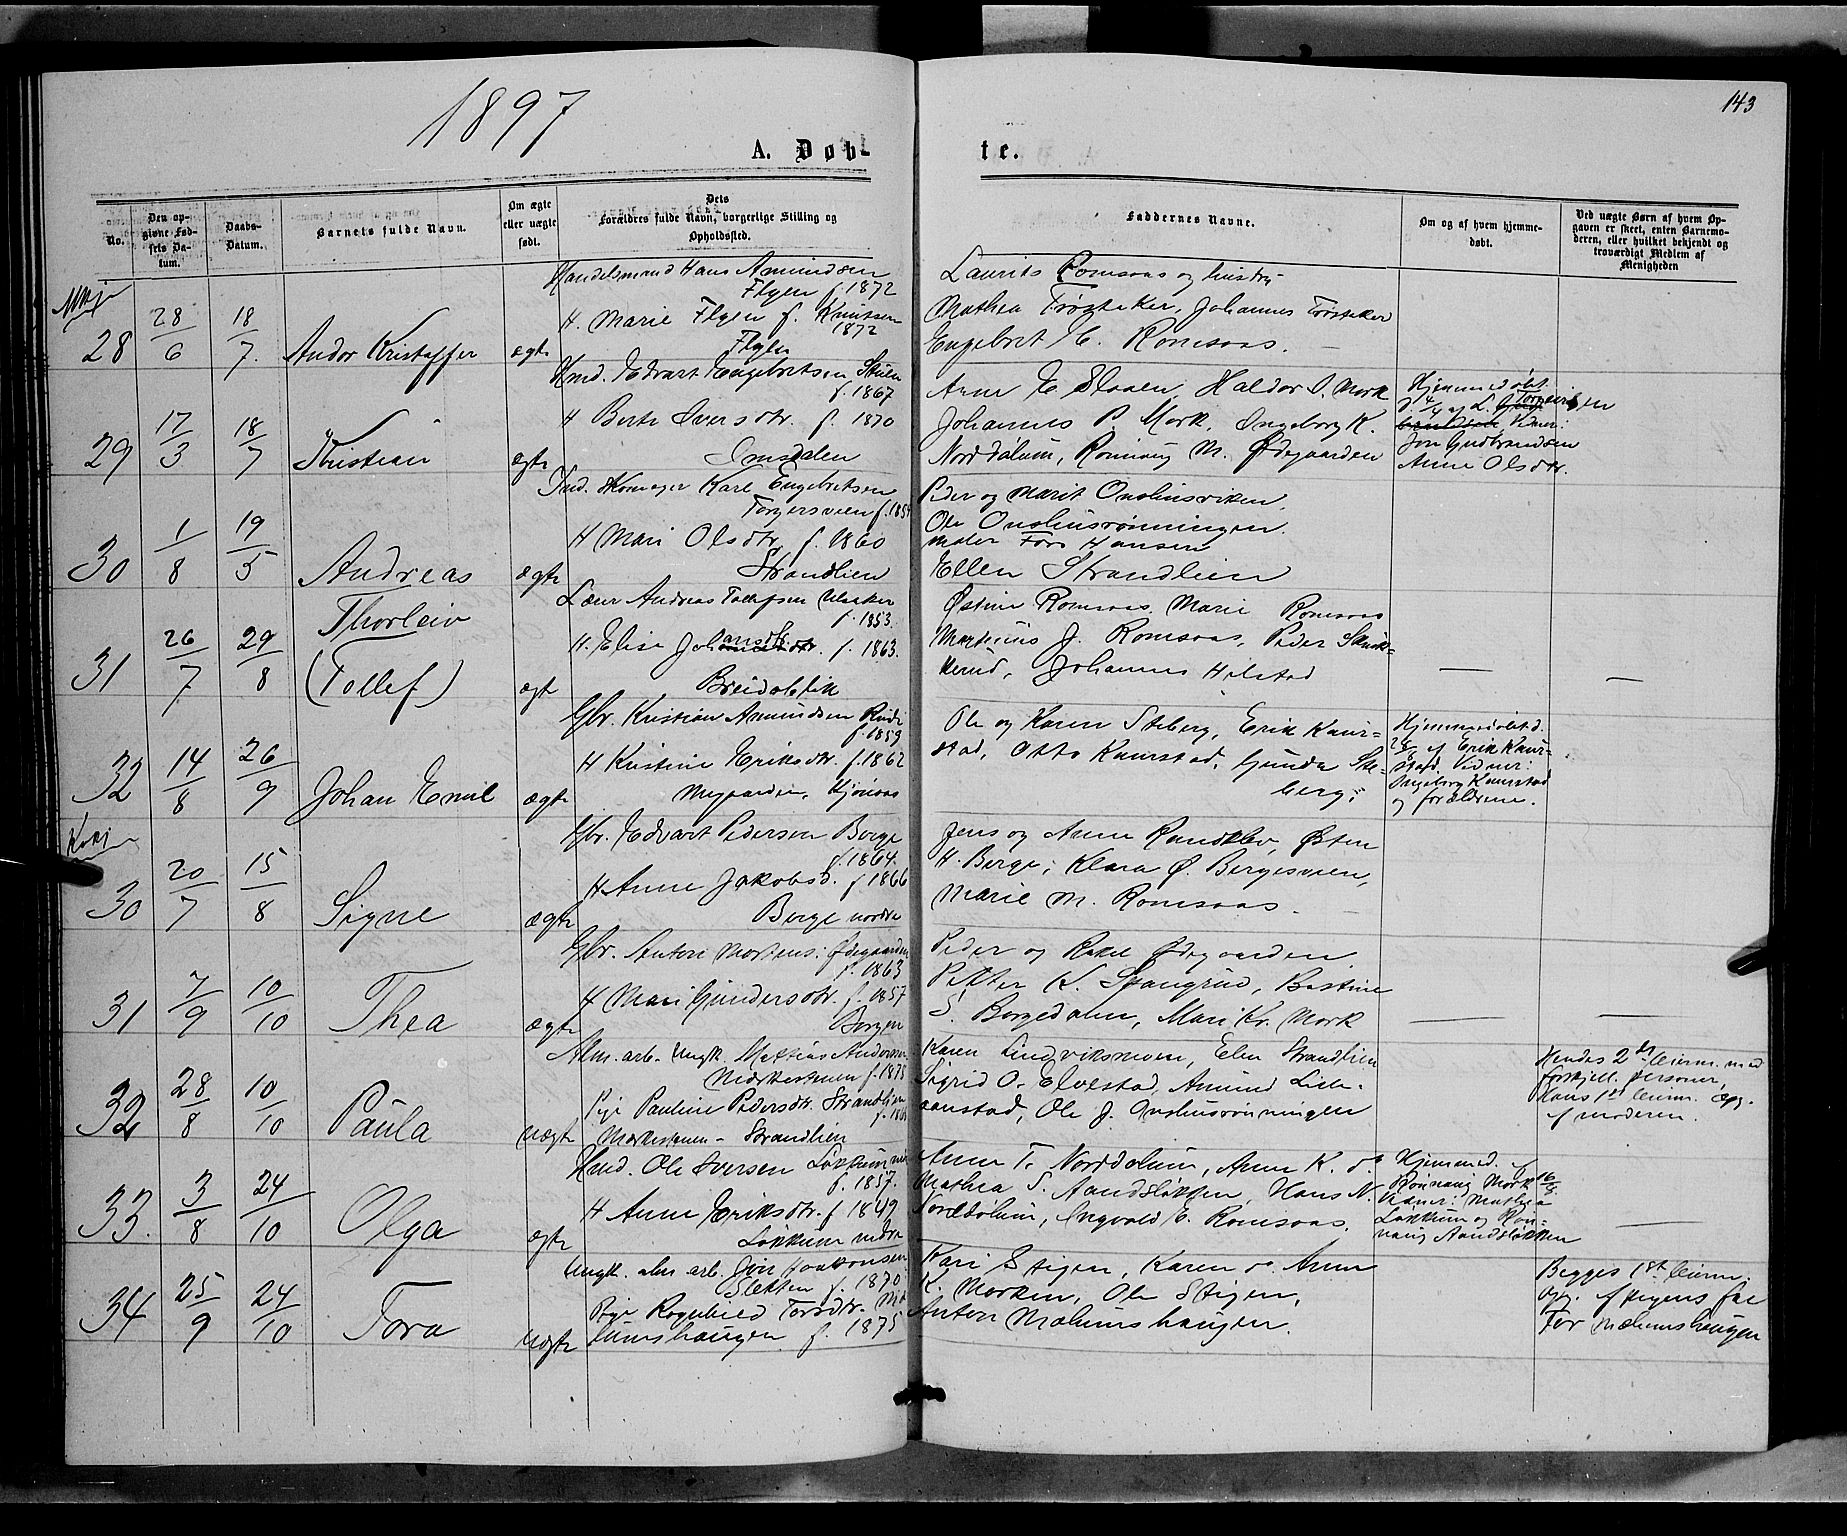 1897
143
A. Døb-
te.
No.
Den op-
givne Fød-
sels Da-
tum.
Daabs-
Datum.
Barnets fulde Navn.
Om ægte
eller uægte
født.
Dets
Forældres fulde Navn, borgerlige Stilling og
Opholdssted.
Faddernes Navne.
Om og af hvem hjemme-
døbt.
Ved uægte Børn af hvem Op-
gaven er skeet, enten Barnemo-
deren, eller hvilket bekjendt og
troværdigt Medlem af
Menigheden
28
28/6
18/7.
Andor Kristoffer
ægte
Handelsmand Hans Amundsen
Flyen f. 1872
H. Marie Flyen f. Knutsen
1872
Flyen
Laurits Romsaas og hustru
Mathea Trøstaker, Johannes Trøstaker
Engebret E. Romsaas.
29
17/3
18/7
Kristian
ægte
Hmd. Edvart Engebretsen Stulen
f. 1867
H Berte Iversdtr. f. 1870
Imsdalen
Anne E Slaaen, Haldor I. Mork
Johannes P. Mork, Ingeborg K.
Norddølum, Rønnaug M. Ødegaarden
Hjemmedøbt
Jon Gudbrandsen
Anne Olsdtr.
30
1/8
19/5
Andreas
ægte
Ind. skomager Karl Engebretsen
Torgersveen f. 1854
H Mari Olsdtr. f. 1860
Strandlien
Peder og Marit Onshusviken
Ole Onshusrønningen
maler Tors Hansen
Ellen Strandlien
31
26/7
29/8
Thorleiv
(Tollef)
ægt
Lærer Andreas Tollefsen Ulsaker
f. 1853.
H. Elise Johansdtr. f. 1863.
Breidablik
Østine Romsaas, Marie Romsaas
Martinius J. Romsaas, Peder Skuik-
kerud, Johannes Hilstad
32
14/8
26/9
Johan Emil
ægte
Gbr. Kristian Amundsen Rude
f. 1859
H Kristine Eriksdtr. f. 1862
Nygaarden, Kjønaas
Ole og Karen Steberg, Erik Kaur-
stad, Otto Kaurstad, Gunda Ste-
berg.
Hjemmedøbt d.
af Erik Kaur-
stad. Vidner:
Ingeborg Kaurstad
og forældrene.
30
20/7
15/8
Signe
ægte
Gbr. Edvart Pedersen Berge
f. 1864.
H Anne Jakobsd. f 1866
Berge nordre
Jens og Anne Randklev, Østen
H. Berge, Klara Ø. Bergesveen,
Marie M. Romsaas.
31
7/9
10/10
Thea
ægte
Gbr. Anton Mortens. Ødegaarden
f. 1863
H Mari Gundersdtr. f. 1857
Borgen
Peder og Rakel Ødegaarden
Petter K. Spangrud, Bastine
S. Borgedalen, Mari Kr. Mork
32
28/8
10/10
Paula
uægte
Alm. arb. Ungk. Mattias Andersen
Mørkestuen f. 1875
Pige Pauline Pedersdtr. Strandlien
Mørkestuen - Strandlien
Karen Lundviksmoen, Elen Strandlien
Sigrid O. Elvestad, Amund Lille-
aanstad, Ole J. Onshusrønningen
Hendes 2den leierm. med
forskjell. personer,
Hans 1ste leierm. Opg.
af moderen.
33.
3/8
24/10
Olga
ægte
Hmd. Ole Iversen Løkkum ndr
f. 1857.
H Anne Eriksdtr. f 1849
Løkkum nedre
Anne T. Norddølum, Anne K. ds
Mathea S. Aandsløkken, Hans N.
Norddølum, Ingvald E. Romsaas.
Hjemmed. af
Rønnaug Mork 16/8
Vidner: Mathea
Løkkum og Røn-
naug Aandsløkken
34
25/9
24/10
Tora
uægte
Ungk. alm. arb. Jon Jaakonsen
Sletten f. 1870
Pige Rognhild Torsdtr. Mæ-
lumshaugen f. 1875
Kari Stigen, Karen ds. Anne
K. Morken, Ole Stigen,
Anton Mælumshaugen.
Begges 1ste leierm.
Opg. af pigens far
Tor Mælumshaugen